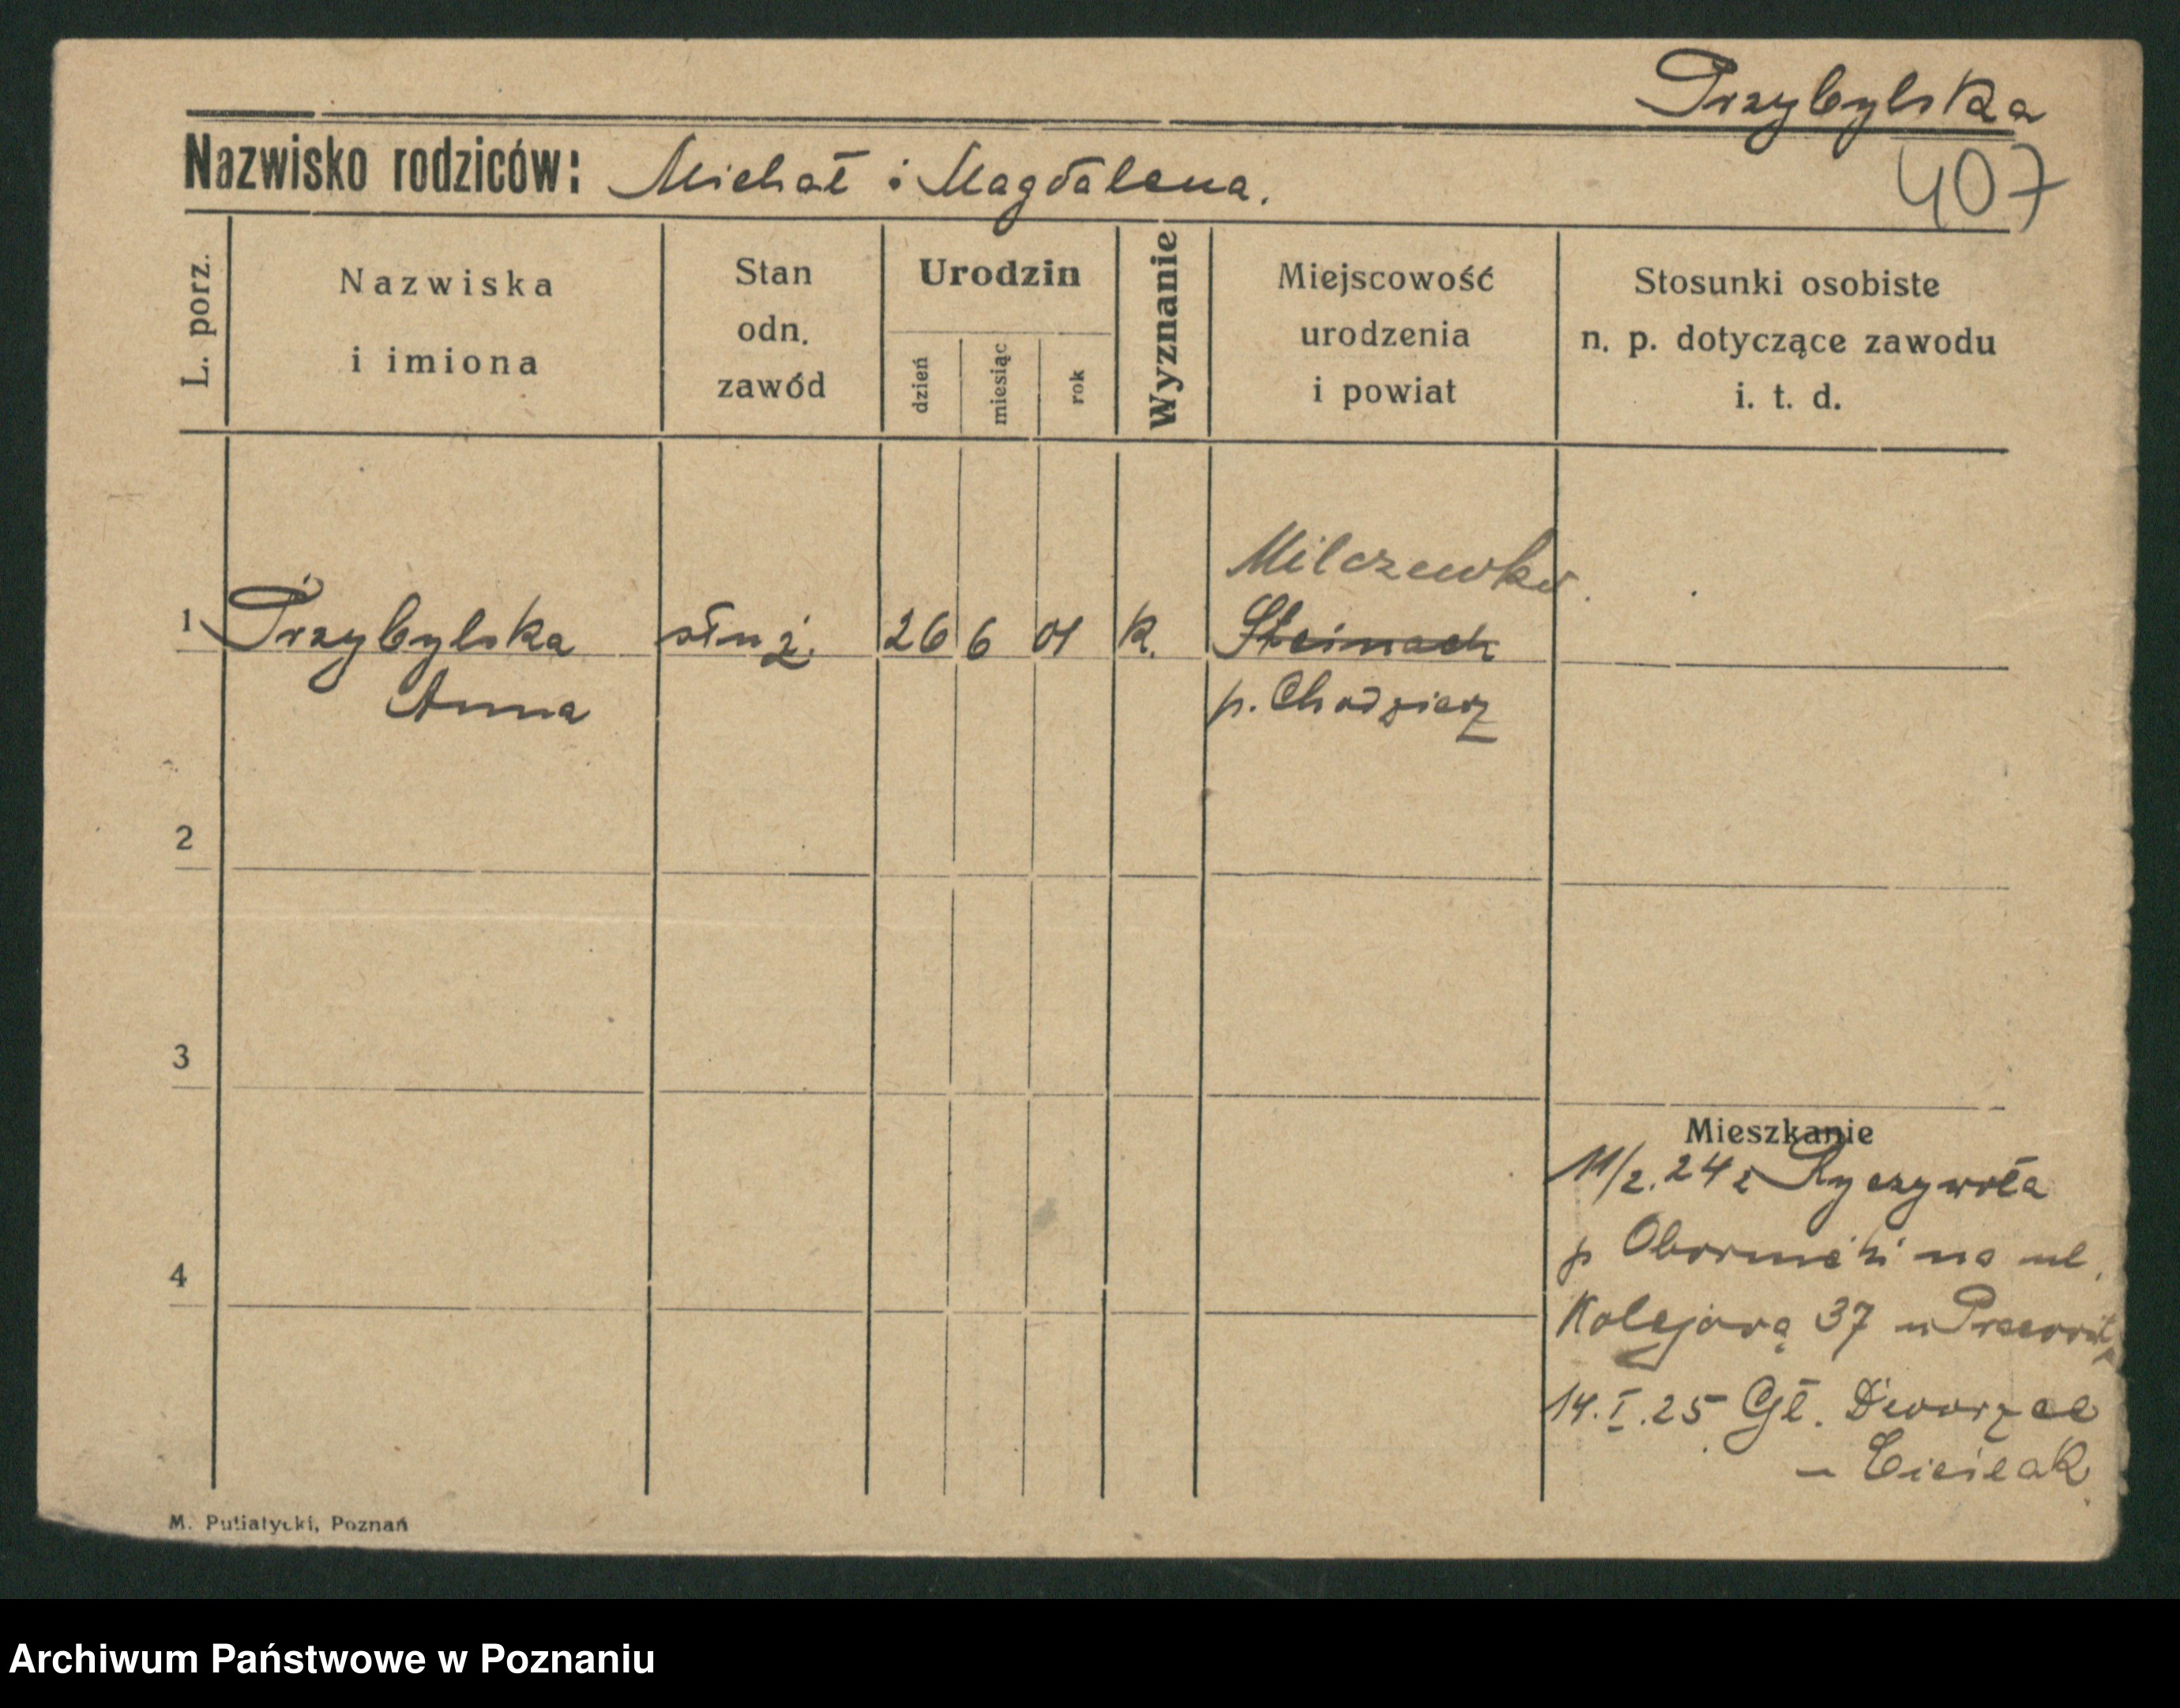 Przybylska
Nazwisko rodziców: Michał i Magdalena.
407
L. porz.
Nazwiska
i imiona
Stan
odn.
zawód
Urodzin
dzień
miesiąc
rok
Wyznanie
Miejscowość
urodzenia
i powiat
Stosunki osobiste
n. p. dotyczące zawodu
i. t. d.
Milczewko.
1 Przybylska służ. 26 6 01 K. Steinach
Anna p. Chodzież
2
3
4
Mieszkanie
11/2.24 z Ryczywoła
p Oborniki na ul.
Kolejową 37 u
14.I.25 Gł. Dworzec
– Cieślak
M. Putiatycki, Poznań
Archiwum Państwowe w Poznaniu